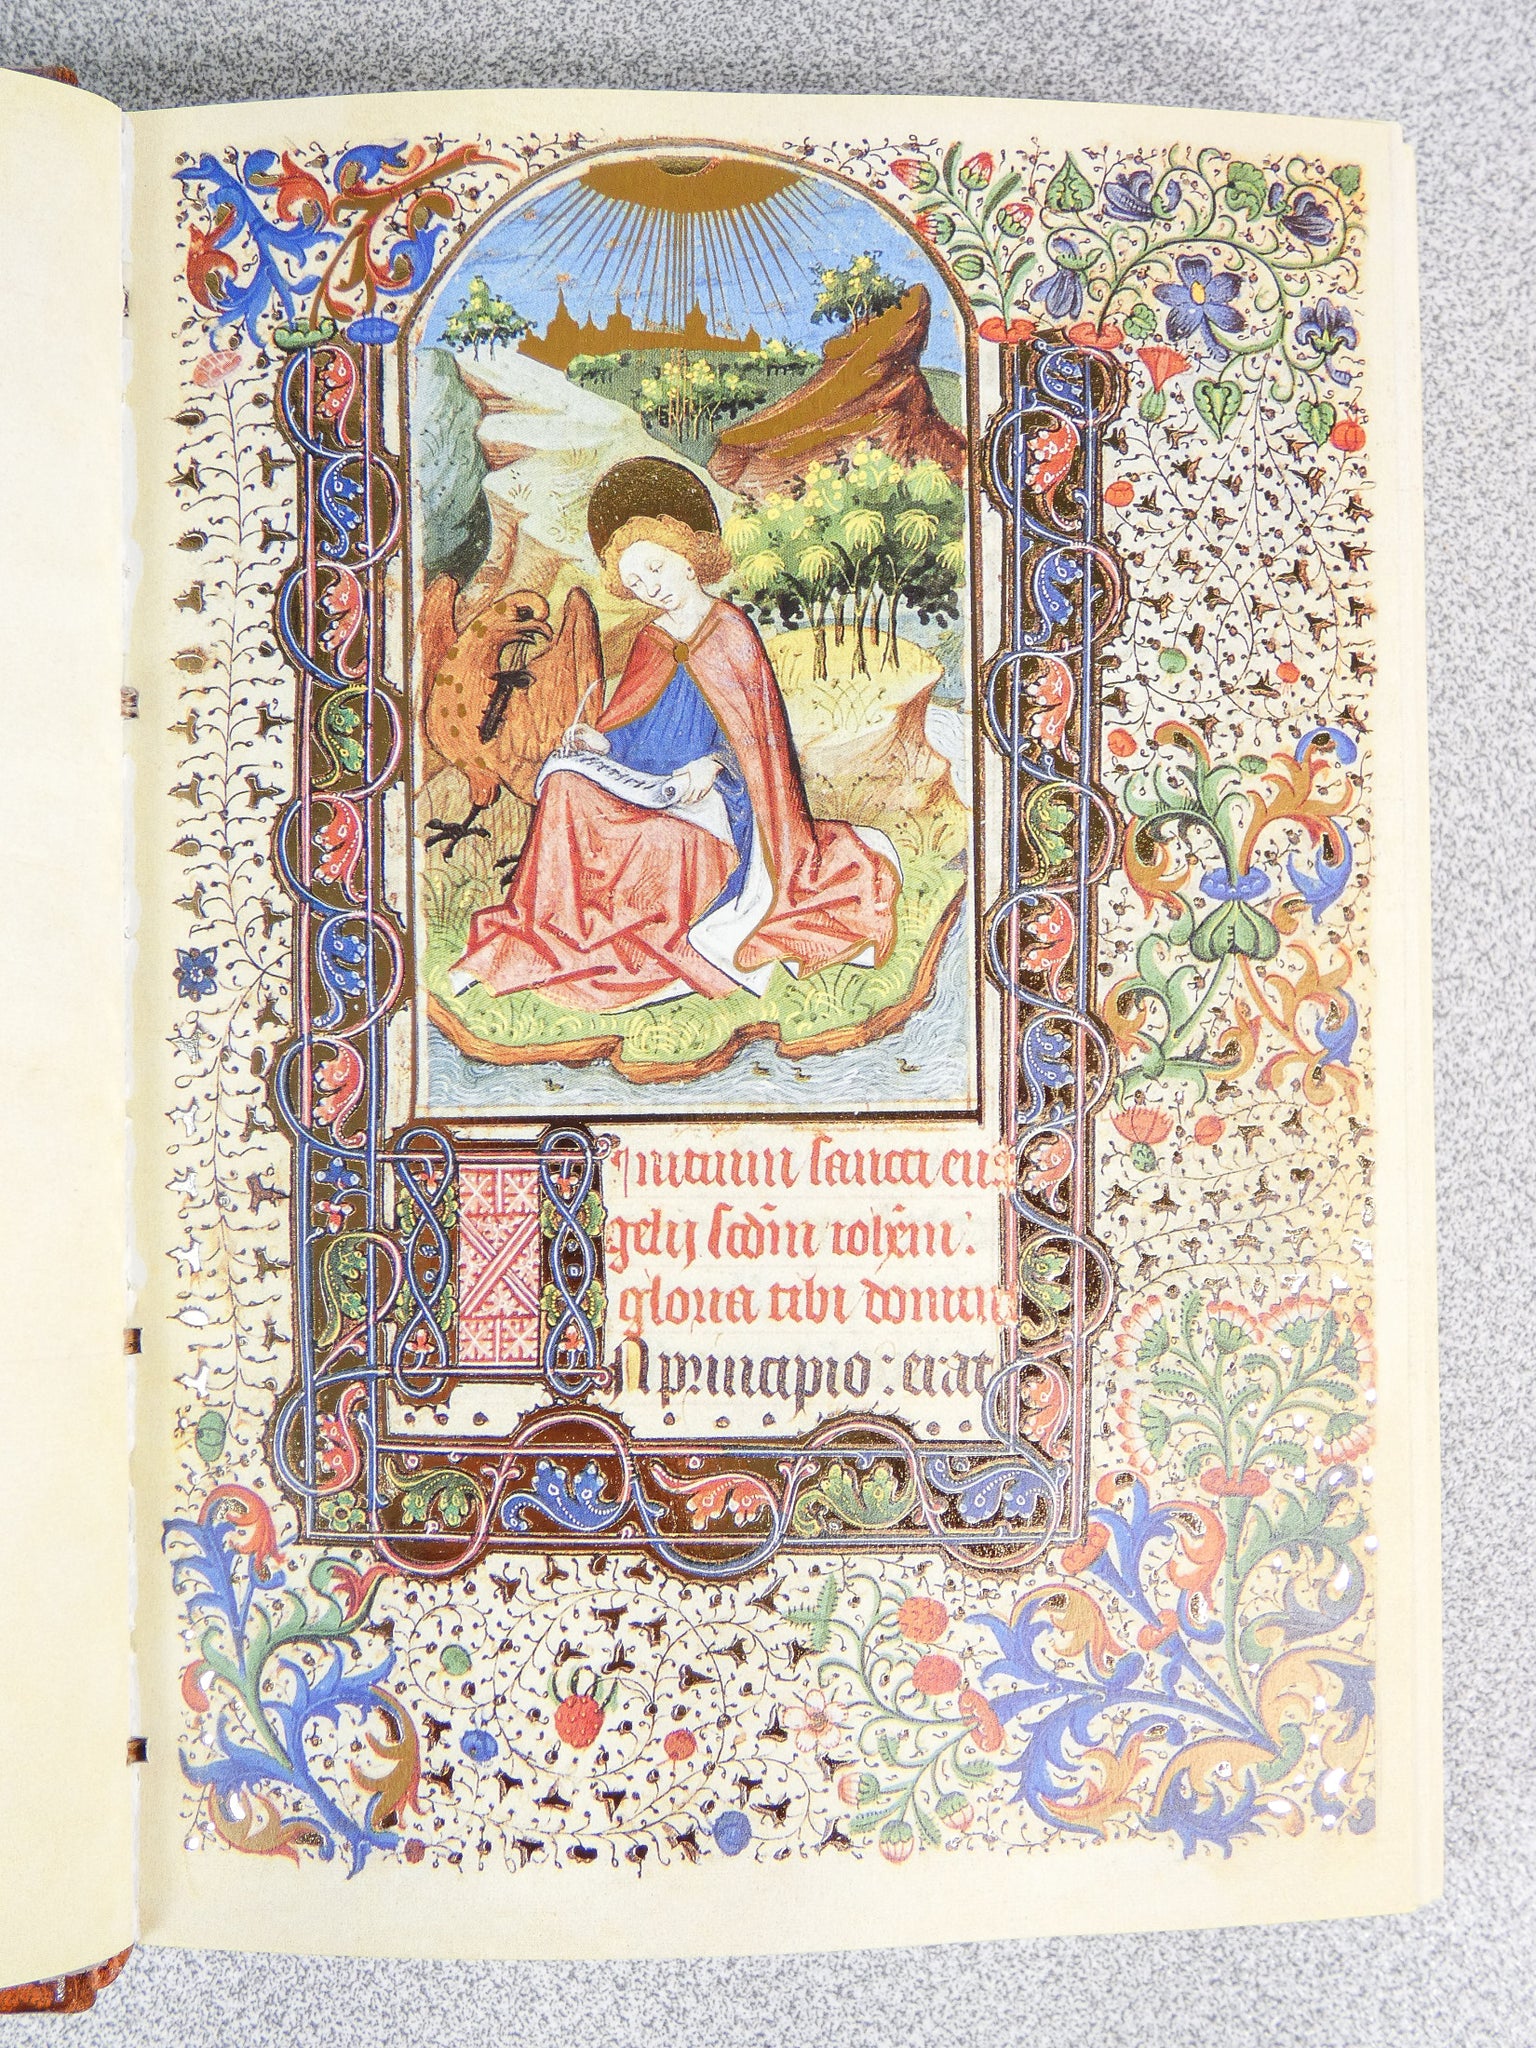 Inicium sancti eu̅a
gelij scd̅m ioh̅em.
gloria tibi domine
IN principio : erat